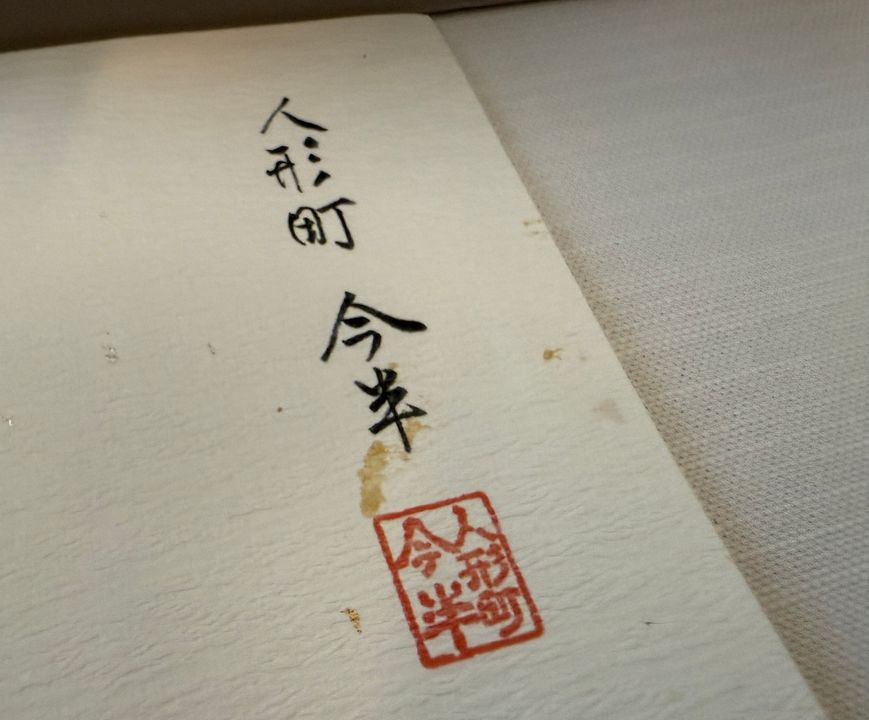 人形町 今半
人形町
今半